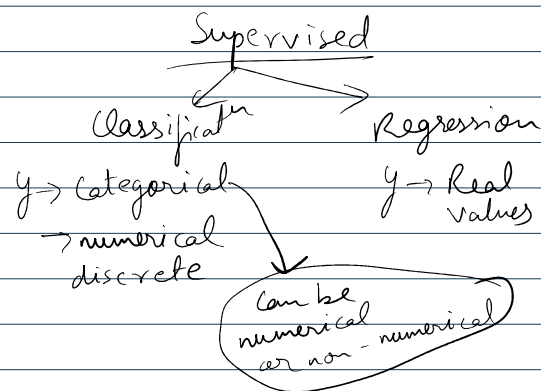 Supervised
Classificatn
Regression
y → Categorical
→ numerical
discrete
y → Real
values
can be
numerical
or non-numerical